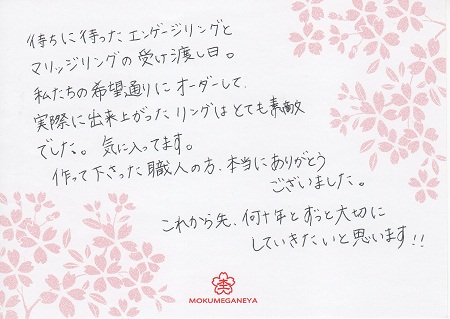 待ちに待った エンゲージリングと
マリッジリングの 受け渡し日。
私たちの希望通りに オーダーして、
実際に出来上がった リングは とても素敵
でした。 気に入ってます。
作って下さった 職人の方、本当にありがとう
ございました。
これから先、何十年と ずっと大切に
していきたいと思います!!
MOKUMEGANEYA